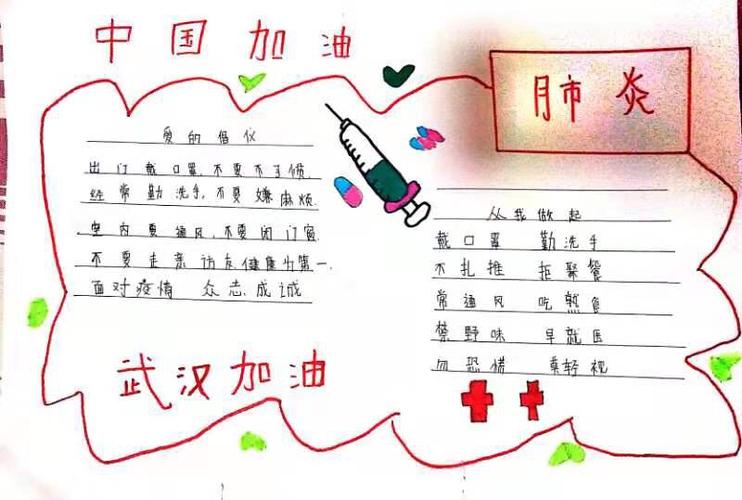 中国加油
肺炎
爱的倡仪
出门戴口罩,不要不习惯.
经常勤洗手,不要嫌麻烦.
室内要通风,不要闭门窗.
不要走亲访友,健康当第一.
面对疫情 众志成诚
武汉加油
从我做起
戴口罩 勤洗手
不扎推 拒聚餐
常通风 吃熟食
禁野味 早就医
勿恐惜 莫轻视